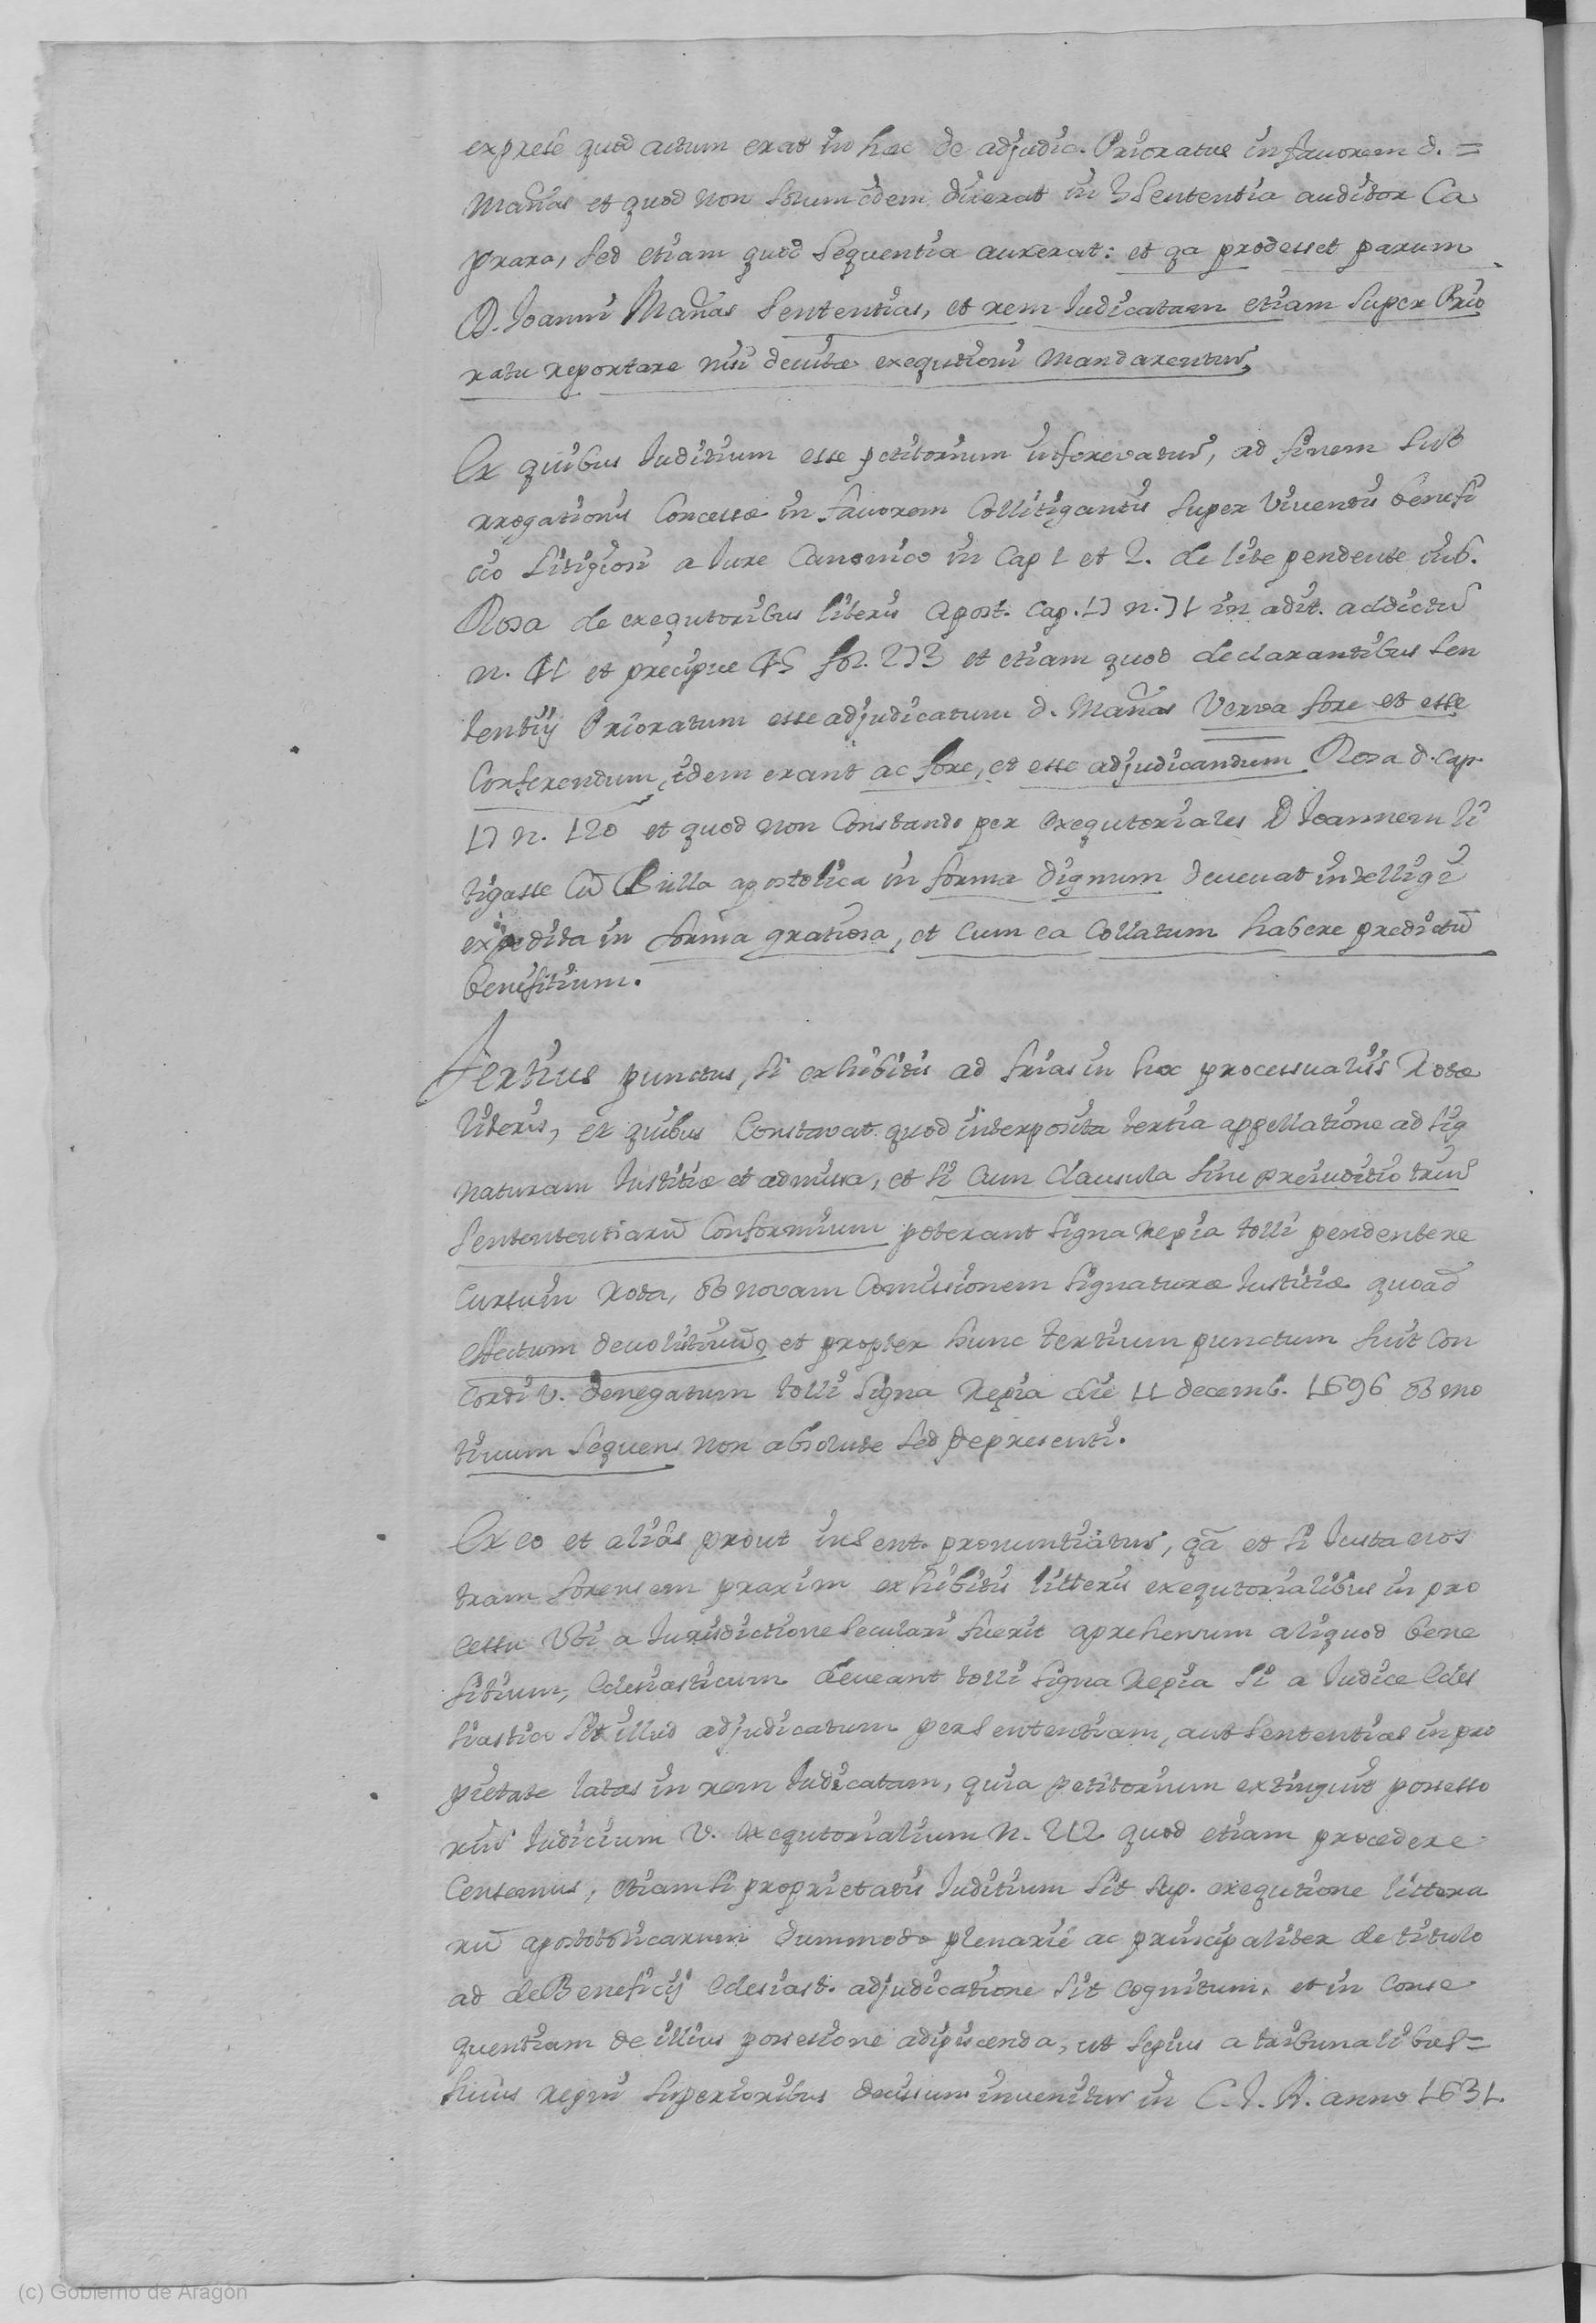 exprese quod actum erat in hac de adjudic. Prioratus in favorem d. =
Mañas et quod non solum idem dixerat in sententia auditor Ca
prara, sed etiam quod sequentia auxerat: et qa prodesset parum
D. Ioanni Mañas sententias, et rem Iudicatam etiam super Prio
ratu reportare nisi devitæ exequtioni mandarentur,
Ex quibus Iuditium esse petitorium inferevatur, ad finem sub
rrogationis Concessæ in favorem Collitigantis super viventis benefi
cio litigiosi a Iure Canonico in Cap 1 et 2. de lite pendente in 6.
Rosa de exequtoribus literis Apost. Cap. 17 n. 71 in adit. addictũ
n. 41 et precipue 45 fol. 273 et etiam quod declarantibus sen
tentijs Prioratum esse adjudicatum d. Mañas verva fore et esse
Conferendum, idem erant ac fore, et esse adjudicandum Rosa d. cap.
17 n. 120 et quod non Constando per exequtoriales D Ioannem li
tigasse Cũ Bulla apostolica in forma dignum devevat intelligi
expedita in forma gratiosa, et cum ea Collatum habere predictũ
benefitium.
Tertius punctus, si exhibitis ad frias in hoc processualis Rotæ
literis, ex quibus Constavat quod interposita tertia appellatione ad sig
naturam Iustitiæ et admissa, et si cum clausula sine preiuditio trium
sentententiarũ Conformium poterant signa regia tolli pendente re
cursu in Rota, ob novam Comissionem signaturæ Iustitiæ quoad
effectum devolutivũ, et propter hunc tertium punctum fuit Con
cordi v. denegatum tolli signa Regia die 11 decemb. 1696 ob mo
tivum sequens non absolute sed de presenti.
Ex eo et aliâs prout in sent. pronuntiatur, qã et si Iusta nos
tram forensem praxim exhibitis litteris exequtorialibus in pro
cessu ubi a Iurisdictione seculari fuerit aprehensum aliquod bene
fitium, Eclesiasticum deveant tolli signa Regia si a Iudice Ecles
siastico sit illud adjudicatum per sententiam, aut sententias in pro
prietate latas in rem Iudicatam, quia petitorium extinguit possesso
riũ Iudicium v. exequtorialium n. 212 quod etiam procedere
Censemus, etiam si proprietatis Iuditium sit sup. exequtione littera
rũ apostotolicarum dummodo plenarie ac principaliter de titulo
ad de Beneficij Eclesiast. adjudicatione sit cognitum, et in conse
quentiam de illius possessione adipiscenda, ut sepius a tribunalibus =
huius regni superioribus decissum invenitur in C. I. A. anno 1631.
(c) Gobierno de Aragón